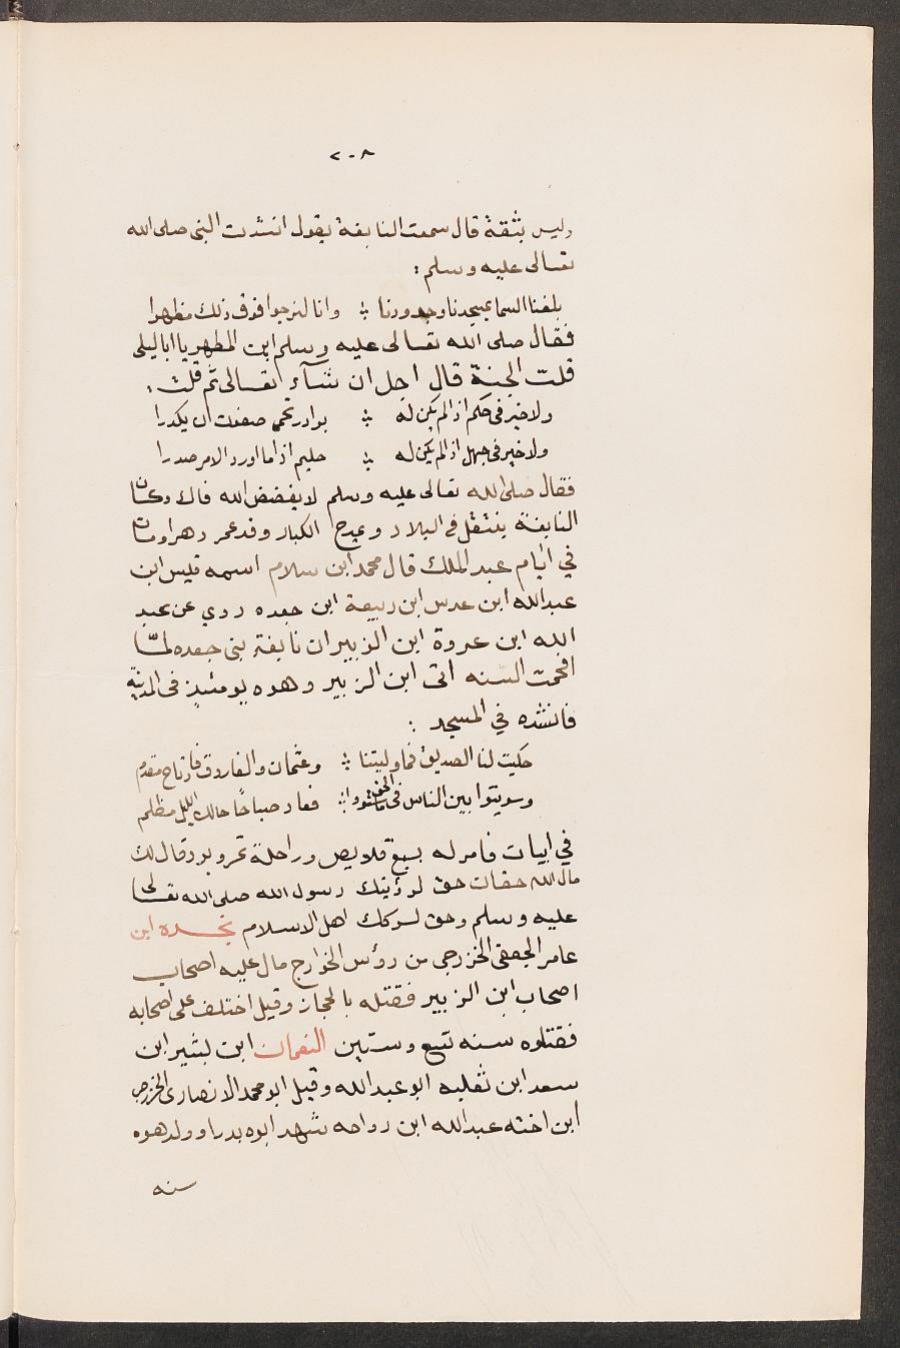 ٢٠٨
وليس بثقة قال سمعت النابغة يقول انشدت النبى صلى الله
تعالى عليه وسلم :
بلغنا السما بمجدنا وجدودنا ؞ وانا لنرجوا فوق ذلك مظهرا
فقال صلى الله تعالى عليه وسلم اين المظهر يا ابا ليلى
قلت الجنة قال اجل ان شآء تعالى ثم قلت ،
ولا خير فى حكم اذا لم يكن له ؞ بوادر تحمى صفوت ان يكدرا
ولا خير فى جهل اذا لم يكن له ؞ حليم اذا ما اورد الامر صدرا
فقال صلى الله تعالى عليه وسلم لا يفضض الله فاك وكان
النابغة ينتقل فى البلاد ويمدح الكبار وقد عمر دهرا ومات
في ايام عبد الملك قال محمد ابن سلام اسمه قيس ابن
عبدالله ابن عدس ابن ربيعة ابن جعده روي عن عبد
الله ابن عروة ابن الزبير ان نابغة بنى جعده لمّا
اقحمت السنه اتى ابن الزبير وهوه يومئذٍ فى المدينة
فانشده في المسجد :
حكيت لنا الصديق فما وليتنا ؞ وعثمان والفاروق فارتاح مقدم
وسويتوا بين الناس فى الحق ؞ فعاد صباحًا حالك الليل مظلم
في ابيات فامر له بسبع قلايص وراحلة تمر وبر وقال لك
مال الله حقان حق لرؤيتك رسول الله صلى الله تعالى
عليه وسلم وحق لشركك اهل الاسلام نجده ابن
عامر الخزرجى من رؤس الخوارج مال عليه اصحاب
اصحاب ابن الزبير فقتله بالحجاز وقيل اختلف على اصحابه
فقتلوه سنه تسع وستين النعمان ابن بشير ابن
سعد ابن ثعلبه ابو عبدالله وقيل ابو محمد الانصارى الخزرجى
ابن اخته عبدالله ابن رواحه شهد ابوه بدرا وولد هوه
سنه